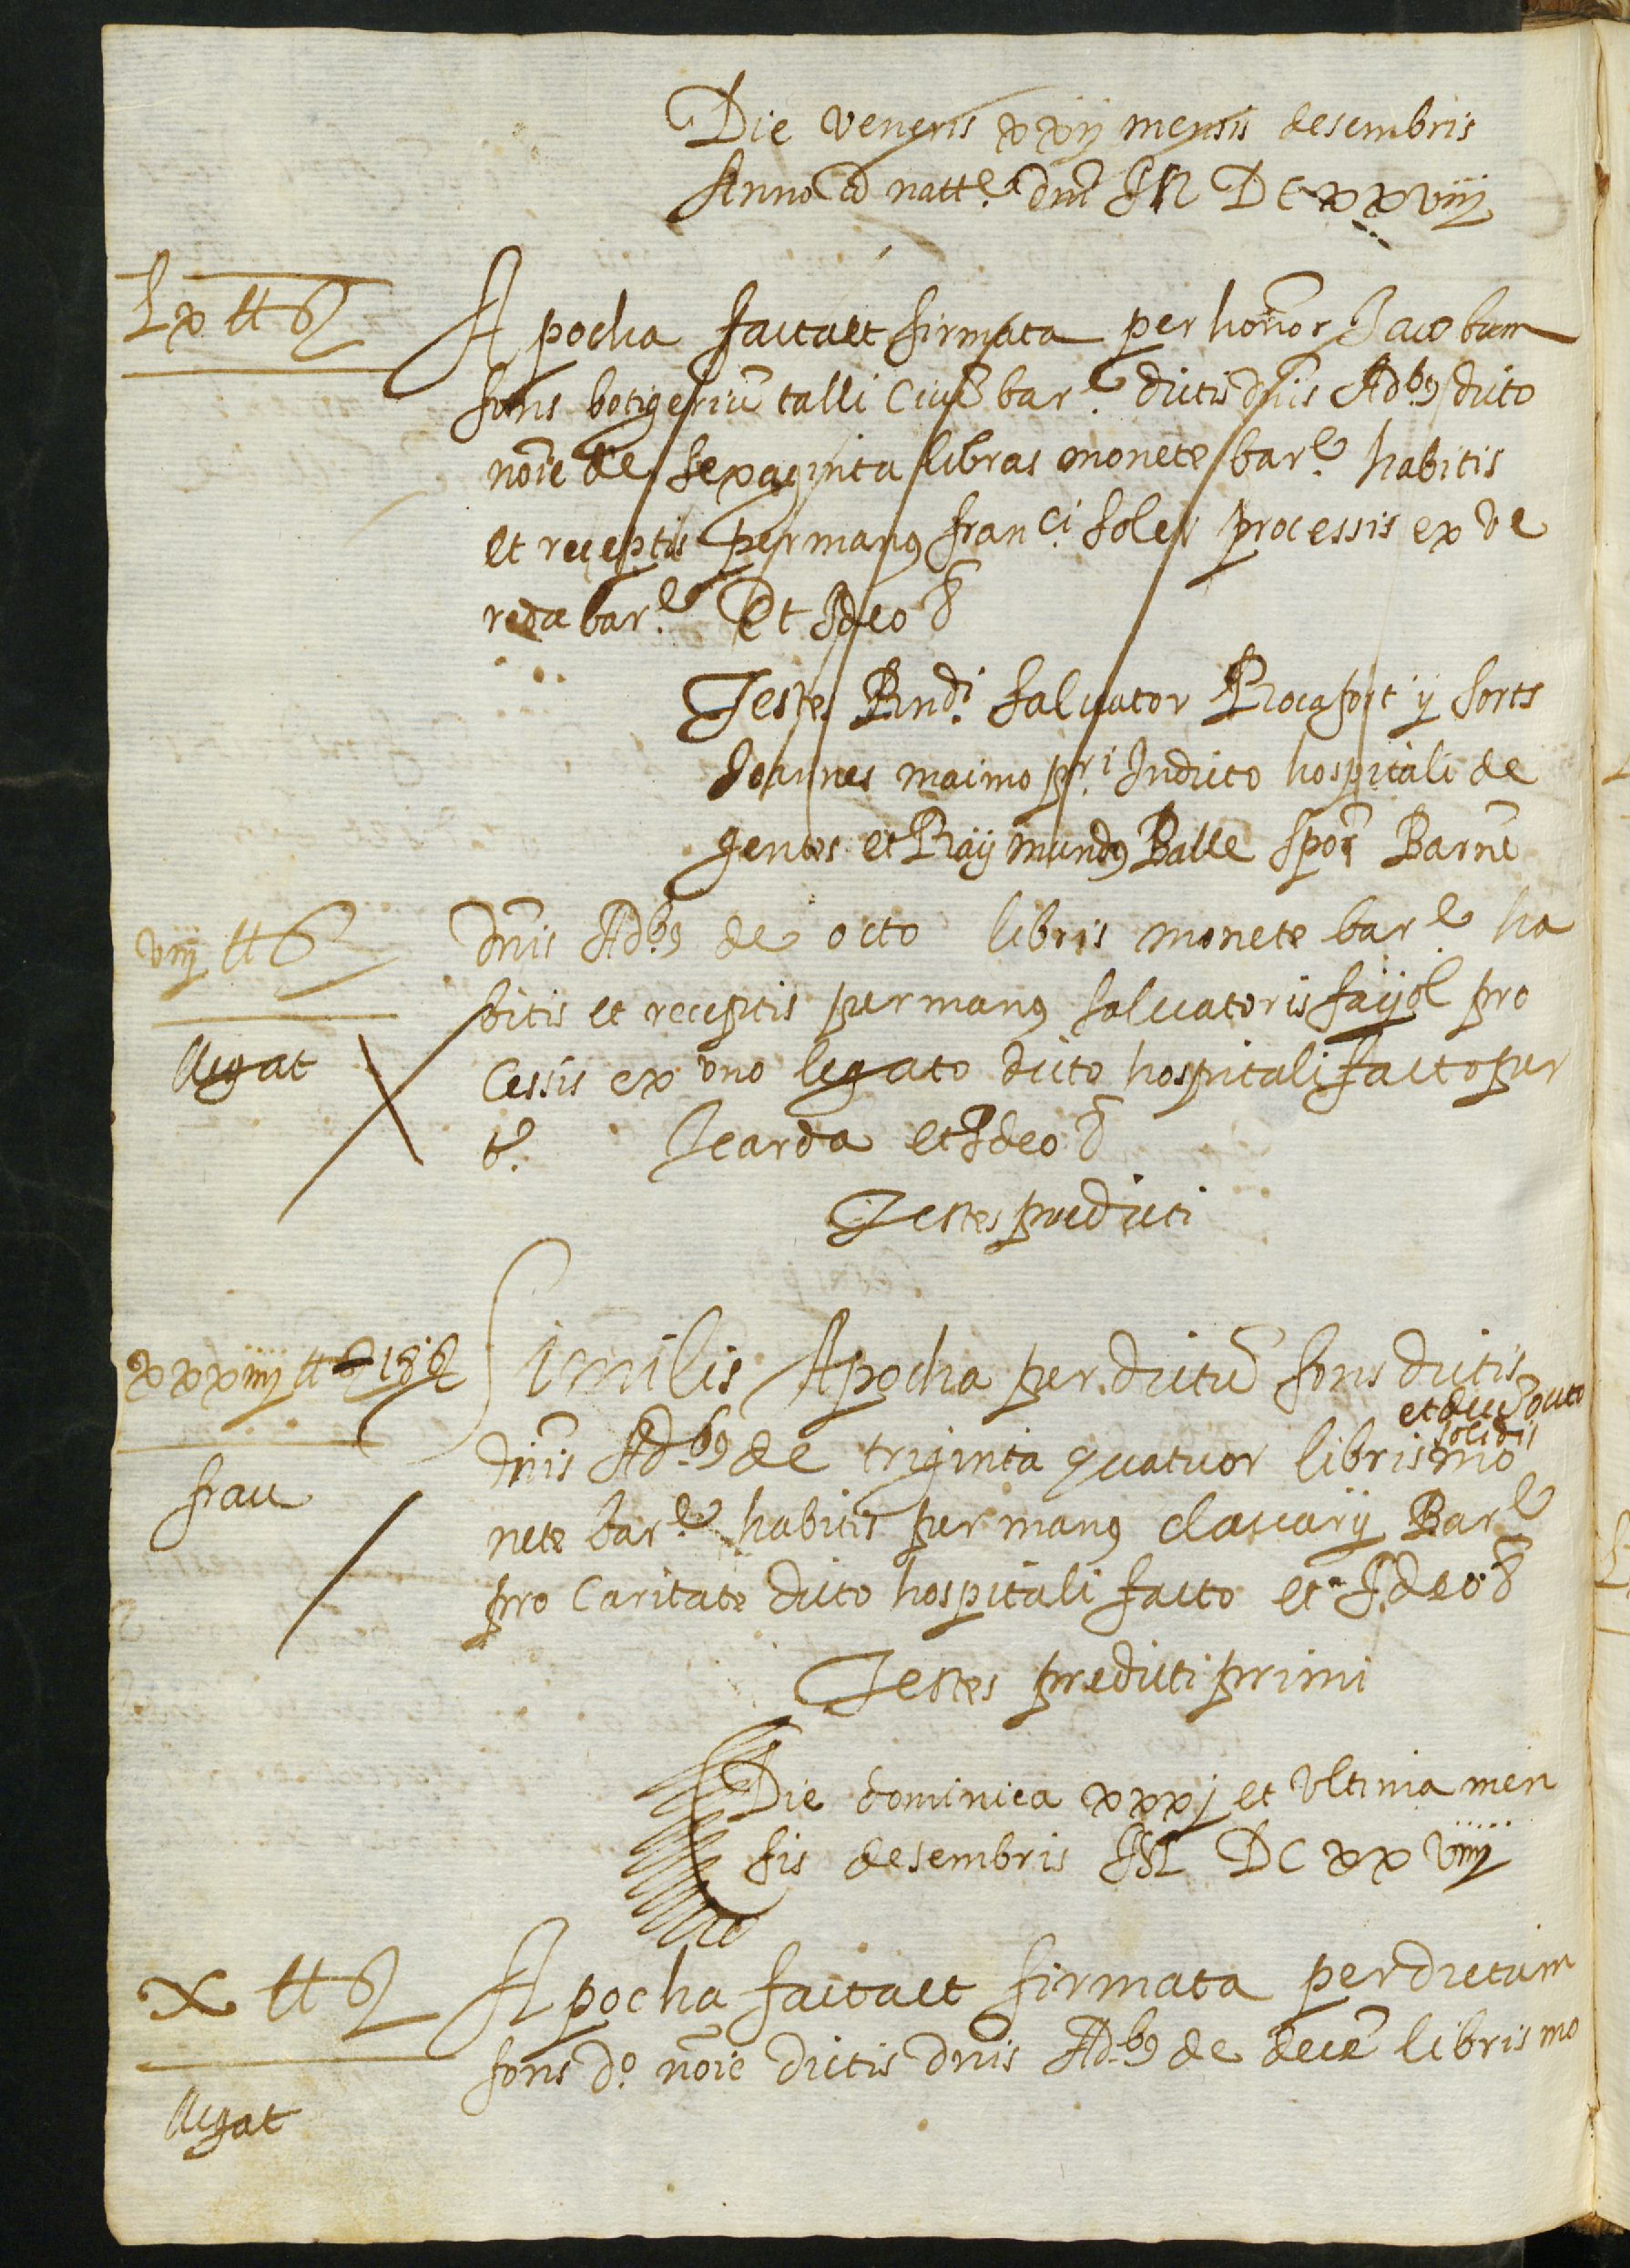 Die veneris xxij mensis desembris
Anno a natte. dni M DC xxviiij
Lx ₶ ſ
Apocha facta et firmata per honor Jacobum
fons botigeriu talli Ciue bare. dictis dnis Adb9 dicto
noie de sexaginta libras monete bare. habitis
et receptis per manus franci. soler processis ex ve
reda bare. Et Ideo &
Testes Rndi. saluator Rocafort y sorts
Joannes maimo pri. In dicto hospitali de
gentes et Raymundus Balle spor Barne
viij ₶ ſ
dnis Adb9 de octo libris monete bare. ha
bitis et receptis per manus saluatoris fayol pro
llegat
Cessis ex vno legato dicto hospitali facto per
t. Icarda et Ideo &
Testes predicti
xxxiiij ₶ 18 ſ
Similis Apocha per dictu fons dictis
et dece octo
solidis
dnis Adb9 de triginta quatuor libris mo
frau
nete bare. habitis per manus clauarij Bare
pro Caritate dicto hospitali facto et Ideo &
Testes predicti primi
Die dominica xxxj et vltima men
sis desembris M DC xx viiij
x ₶ ſ
Apocha facta et firmata per dictum
fons do. noie dictis dnis Adb9 de dece libris mo
llegat